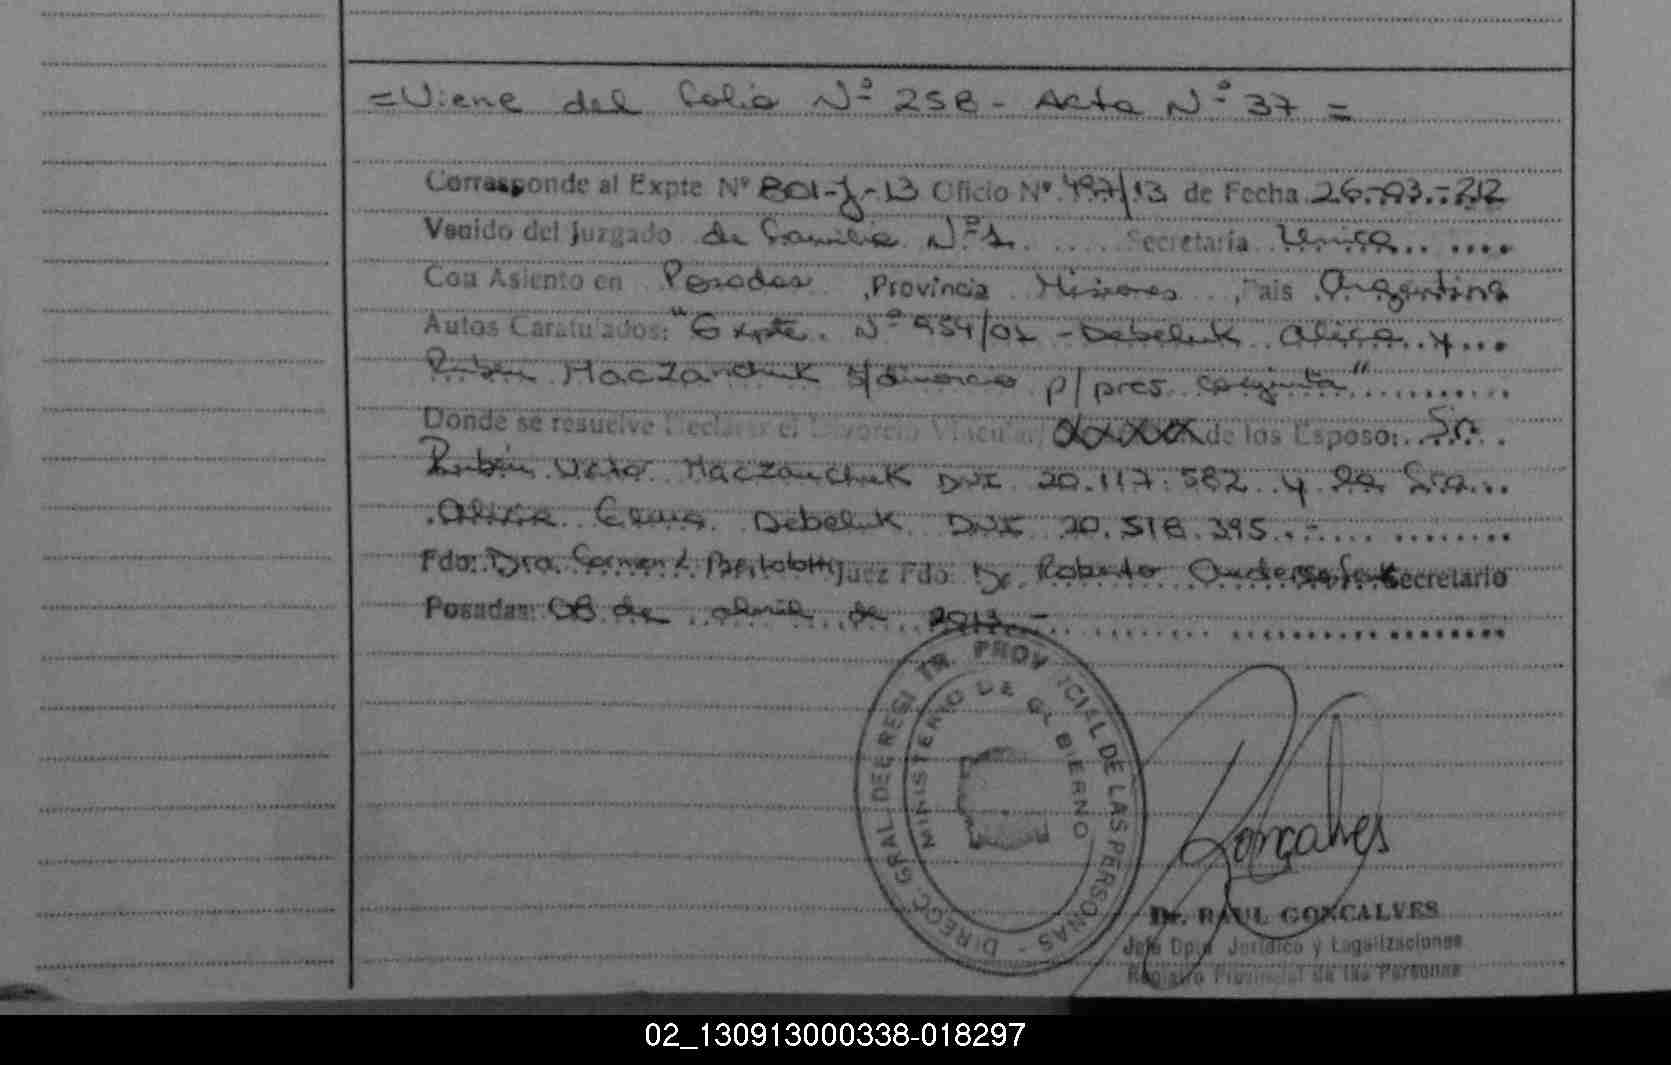 =Viene del folio Nº 258 - Acta Nº 37 =
Corresponde al Expte Nº 801-J-13 Oficio Nº 497/13 de Fecha 26.-03.-212
Venido del Juzgado de Familia Nº 1 Secretaría Unica
Con Asiento en Posadas, Provincia Misiones, País Argentina
Autos Caratulados: "Expte. Nº 954/02 - Debeluk Alicia y
Rubén Maczanchuk s/divorcio p/ pres. conjunta"
Donde se resuelve Declarar el Divorcio Vincular, de los Esposo: Sr.
Rubén Maczanchuk DNI 20.117.582 y la Sra.
Alicia Debeluk DNI 20.518.395.-
Fdo: Dra. Juez Fdo: Dr. Roberto Secretario
Posadas: 08 de abril de 2013 -
DIRECC. GRAL. DEL REGISTR. PROVINCIAL DE LAS PERSONAS -
MINISTERIO DE GOBIERNO
Gonçalves
Dr. RAUL GONCALVES
Jefe Dpto Jurídico y Legalizaciones
Registro Provincial de las Personas
02_130913000338-018297